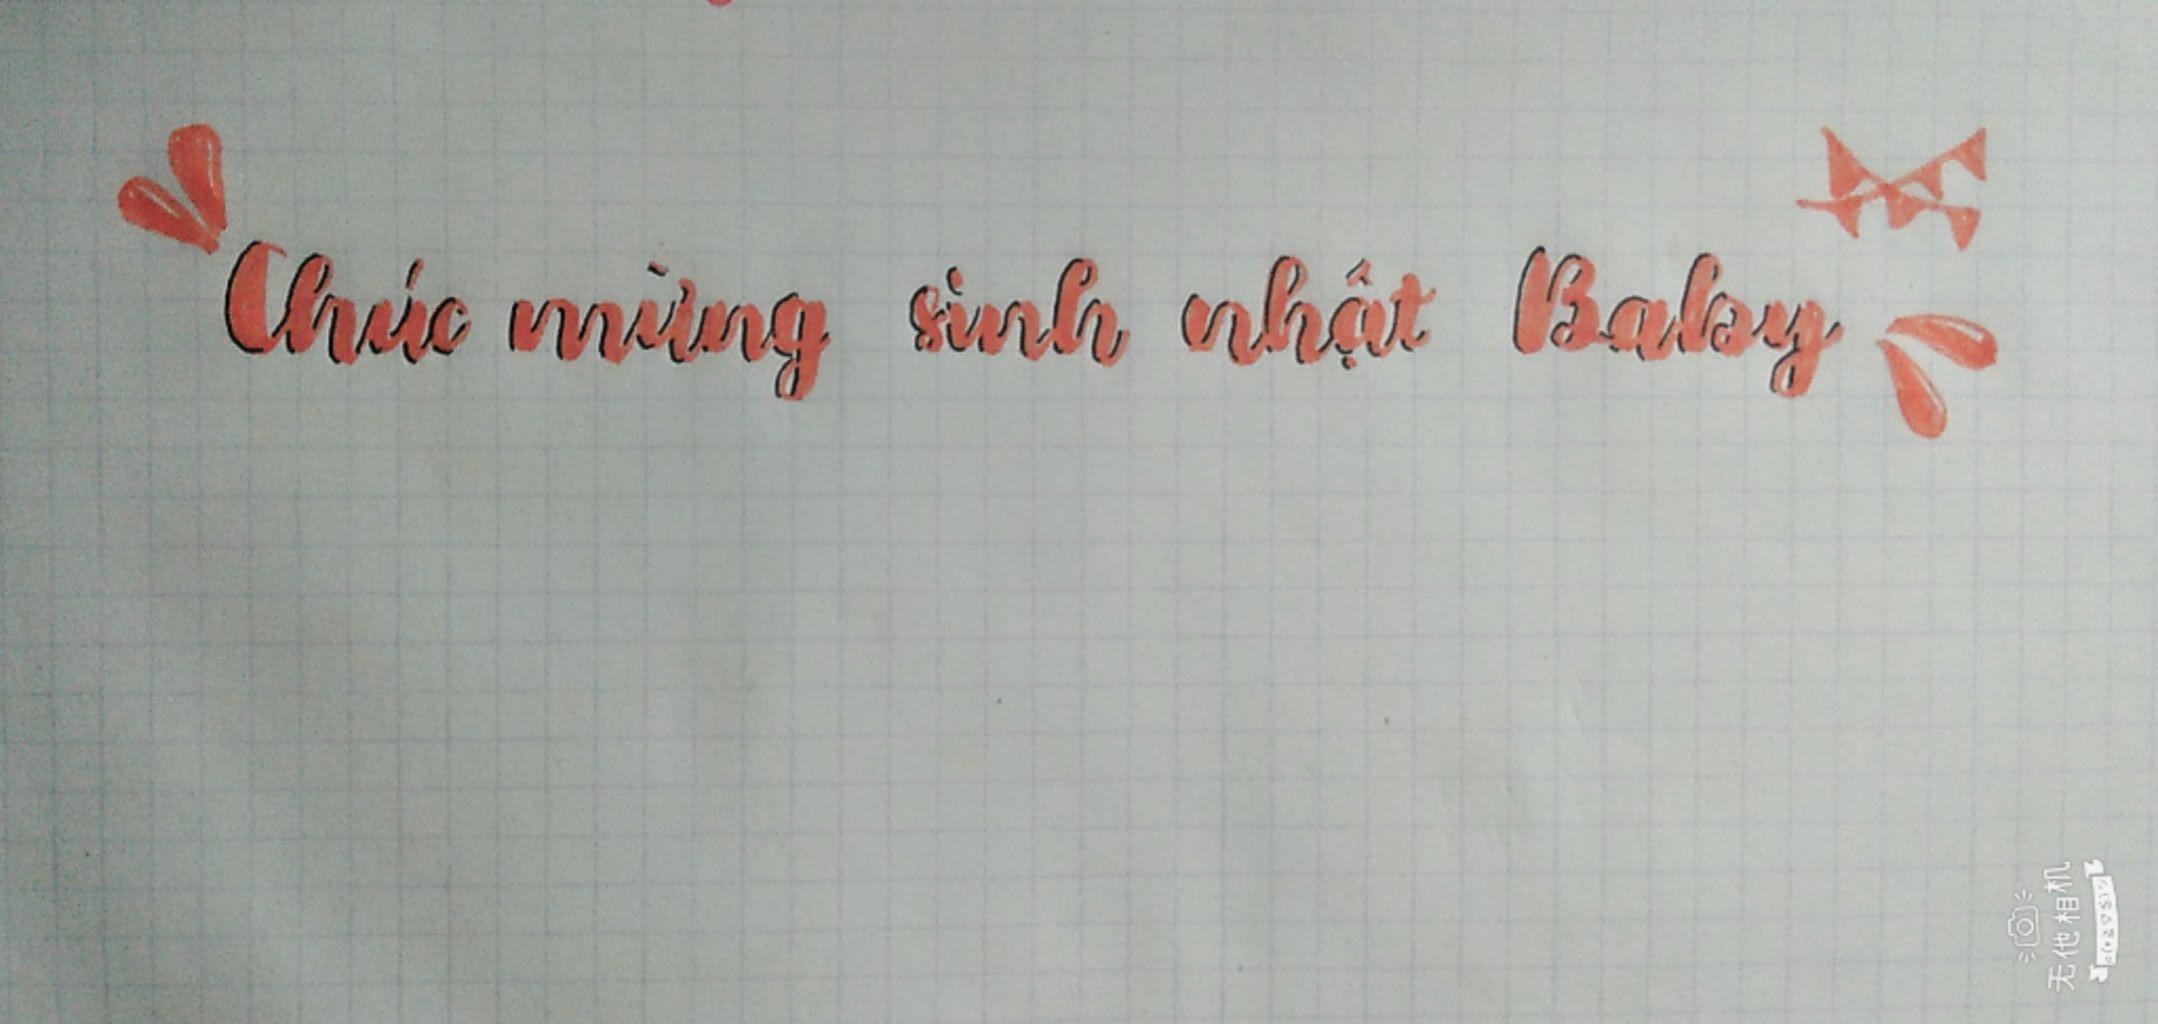 Chúc mừng sinh nhật Baby
无他相机